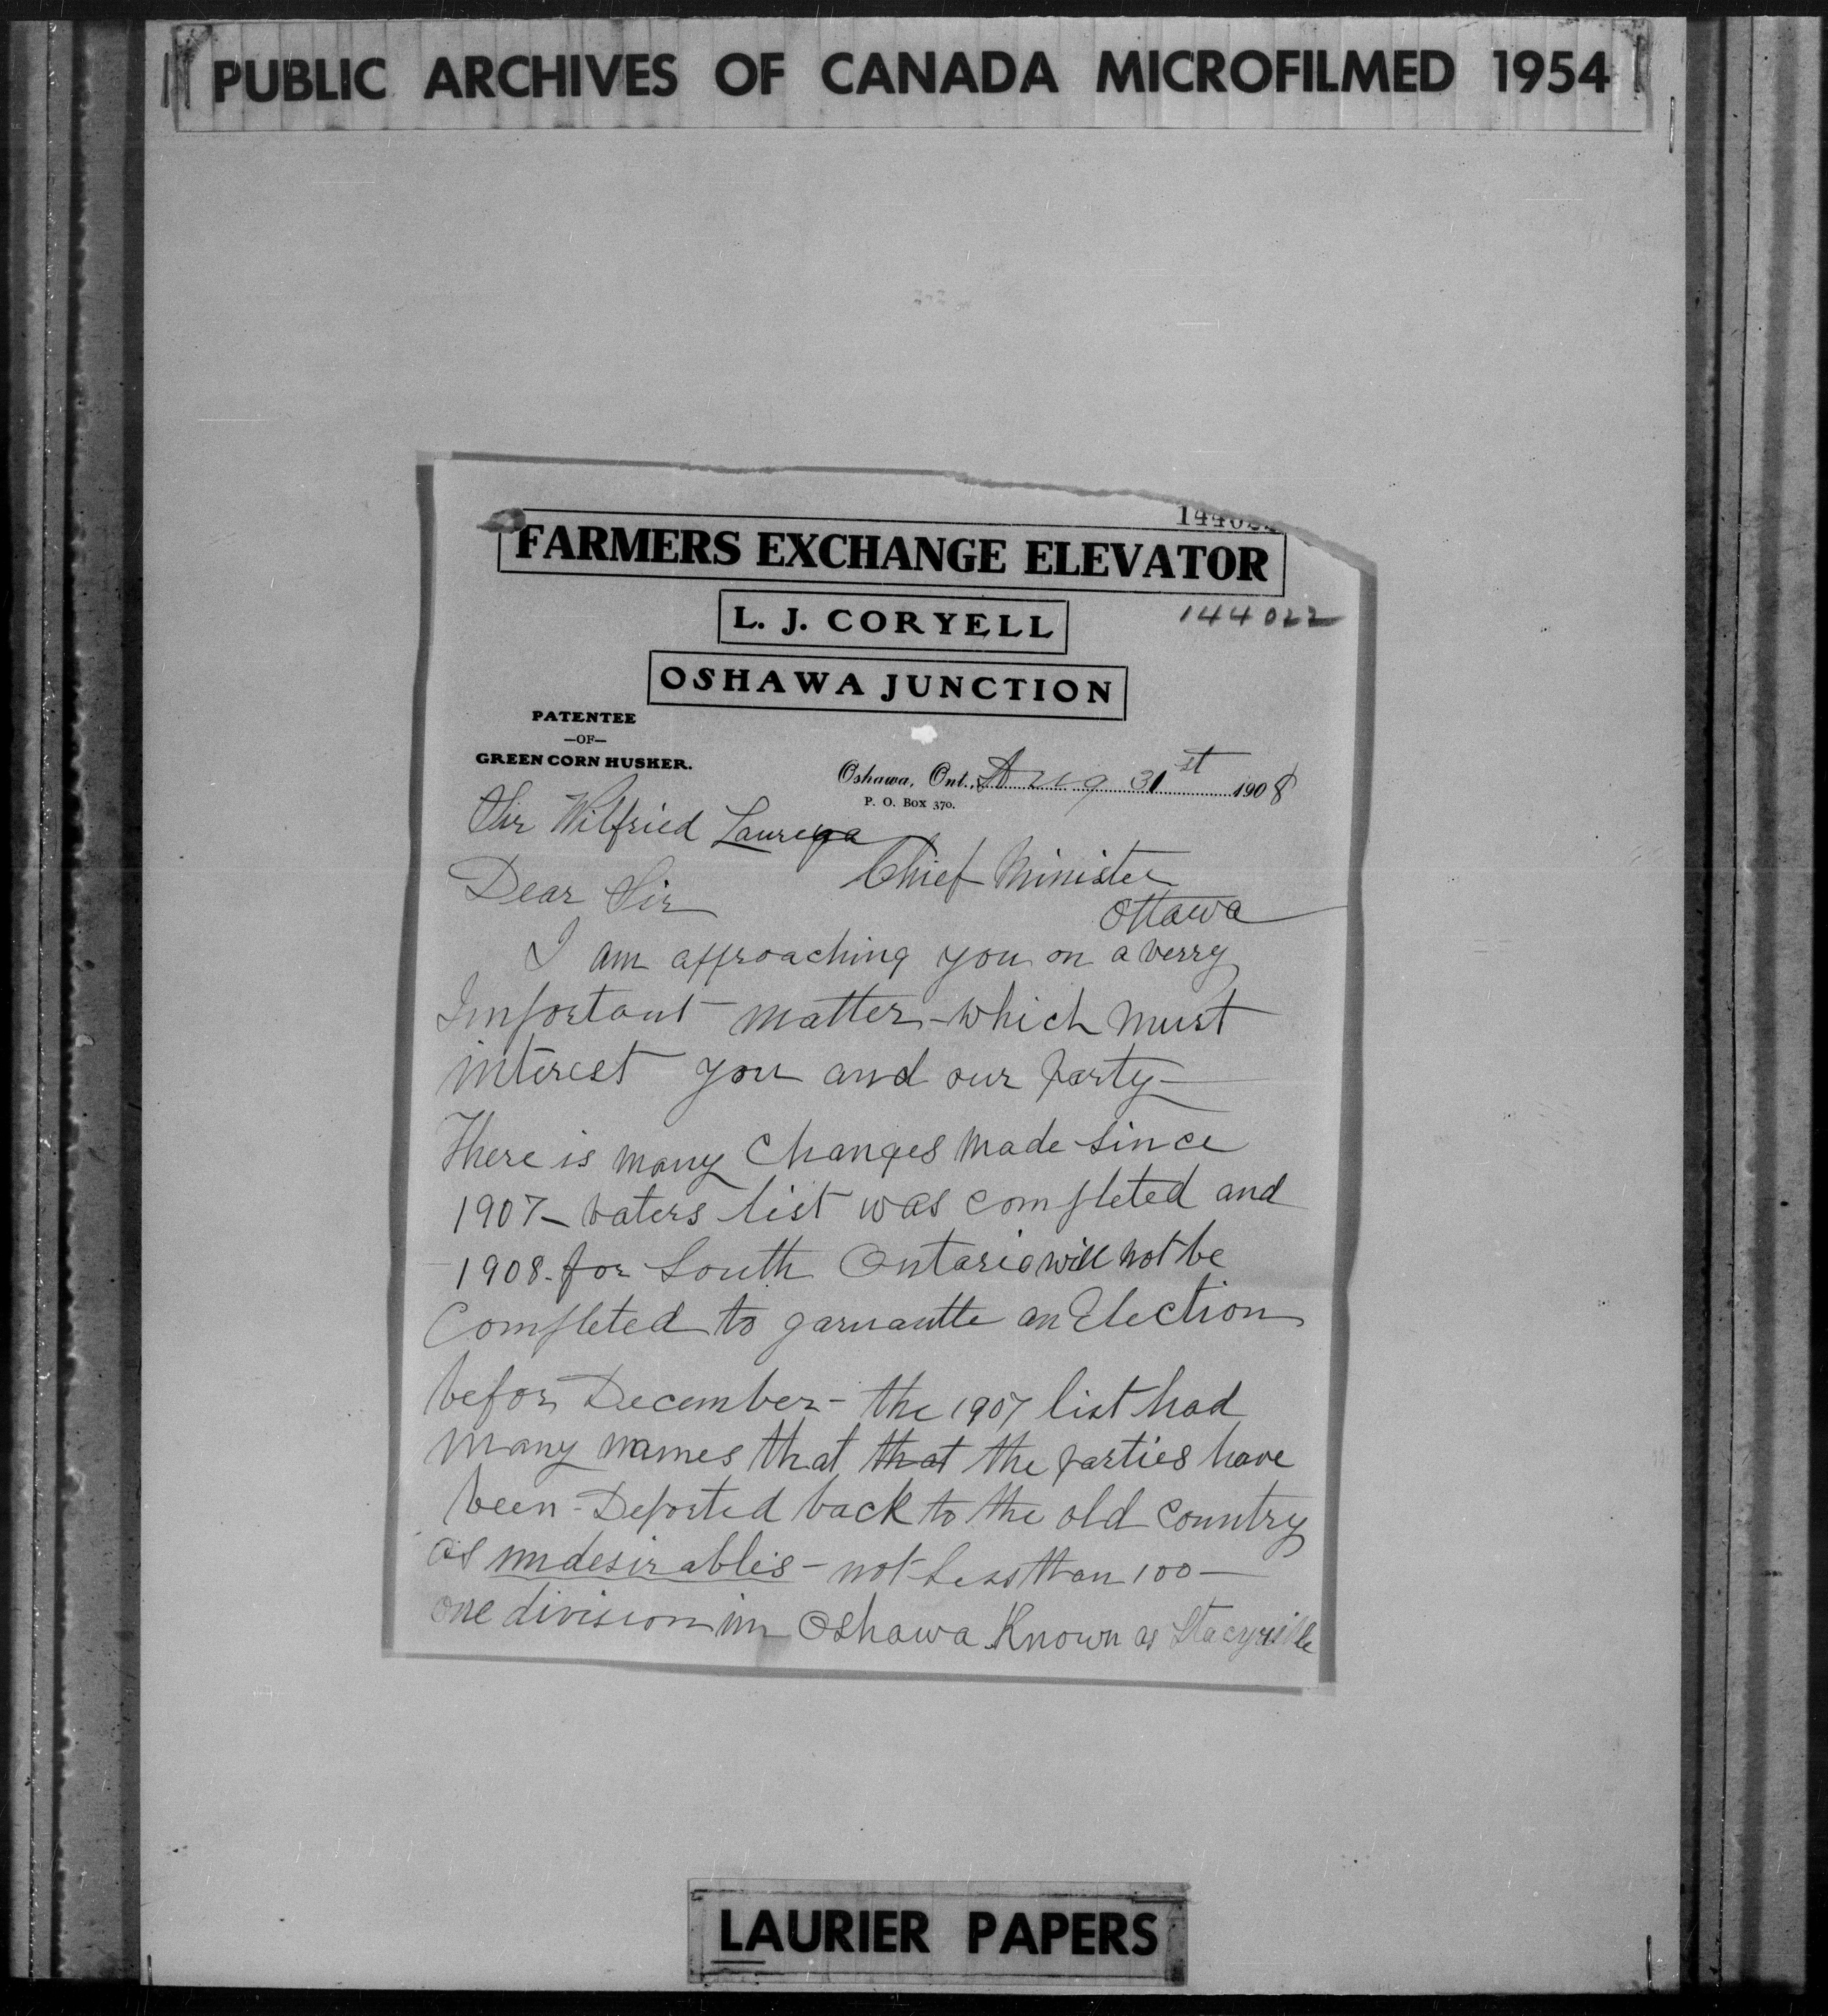 PUBLIC ARCHIVES OF CANADA MICROFILMED 1954
FARMERS EXCHANGE ELEVATOR
L. J. CORYELL
144022
OSHAWA JUNCTION
PATENTEE
—OF—
GREEN CORN HUSKER.
Oshawa, Ont., Aug 31st 1908
P. O. Box 370.
Sir Wilfried
Chief Minister
Dear Sir
Ottawa
I am approaching you on a verry
Important matter - which must
interest you and our party -
There is many Changes made since
1907 - voters list was completed and
1908 - for South Ontario will not be
Completed to an Election
befor December - the 1907 list had
many names that that the parties have
been - Deported back to the old country
as undesirables - not Less than 100 -
one division in Oshawa Known as Stacyville
LAURIER PAPERS